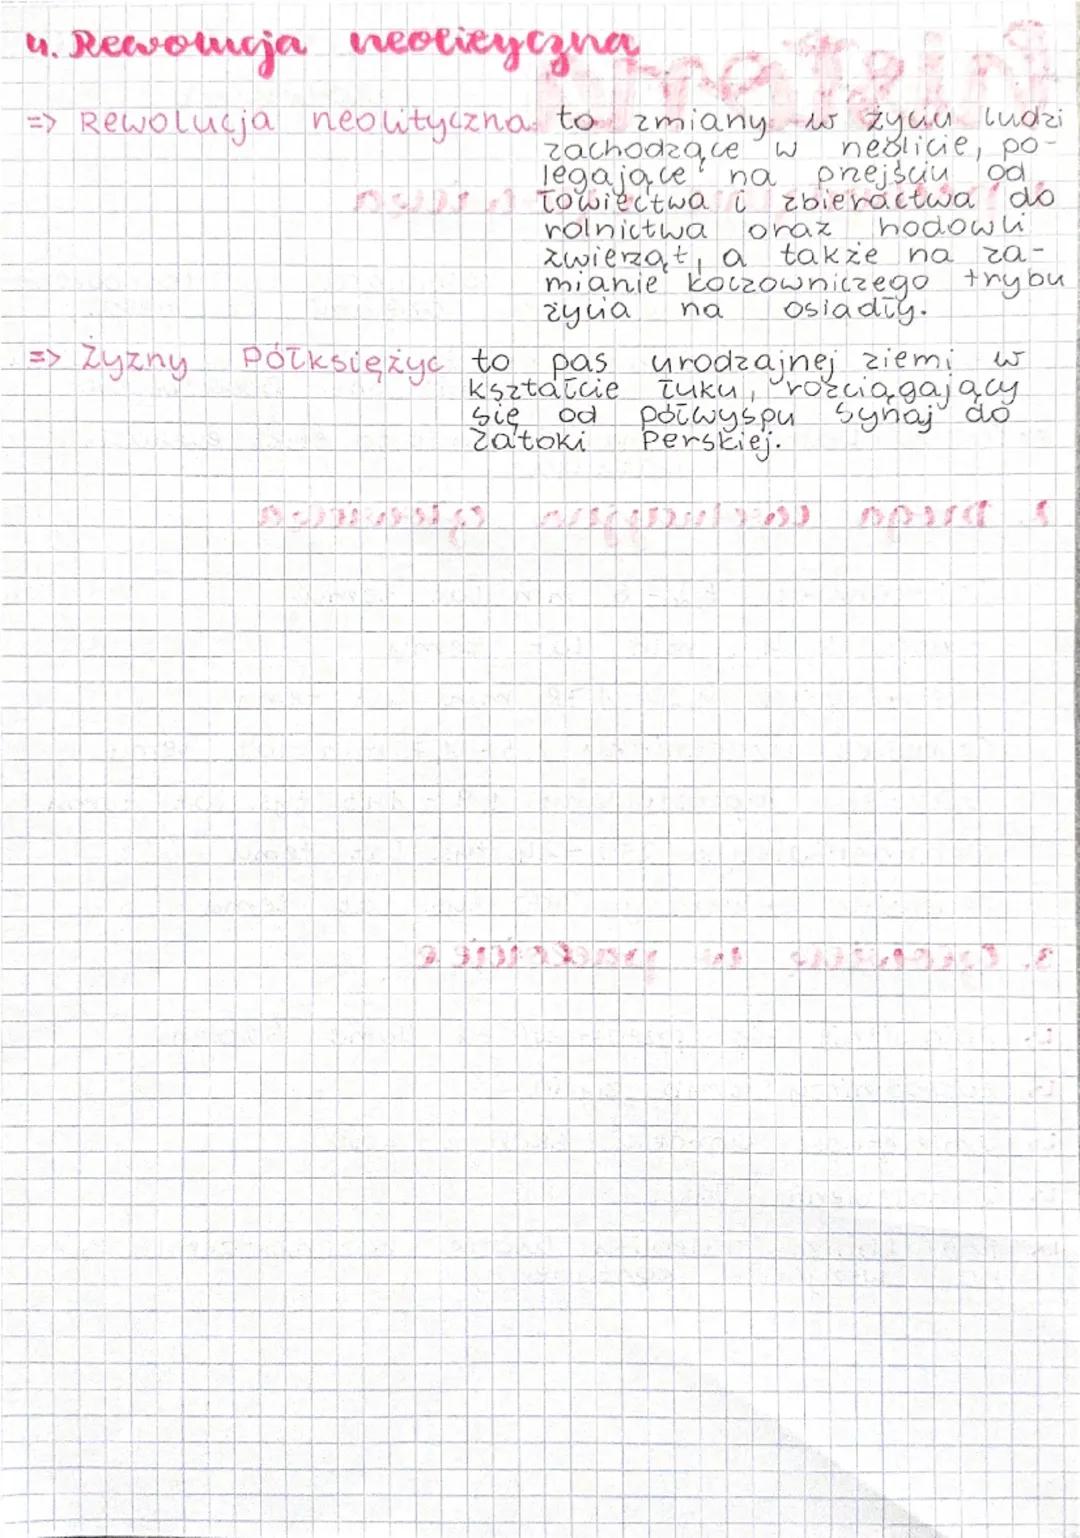 4. Rewolucja neolityczna
=> Rewolucja neolityczna to zmiany w życiu ludzi
zachodzące w neolicie, po-
legające na przejściu od
łowiectwa i zbieractwa do
rolnictwa oraz hodowli
zwierząt, a także na za-
mianie koczowniczego trybu
życia na osiadły.
=> Żyzny Półksiężyc to pas urodzajnej ziemi w
kształcie łuku, rozciągający
się od półwyspu Synaj do
Zatoki Perskiej.